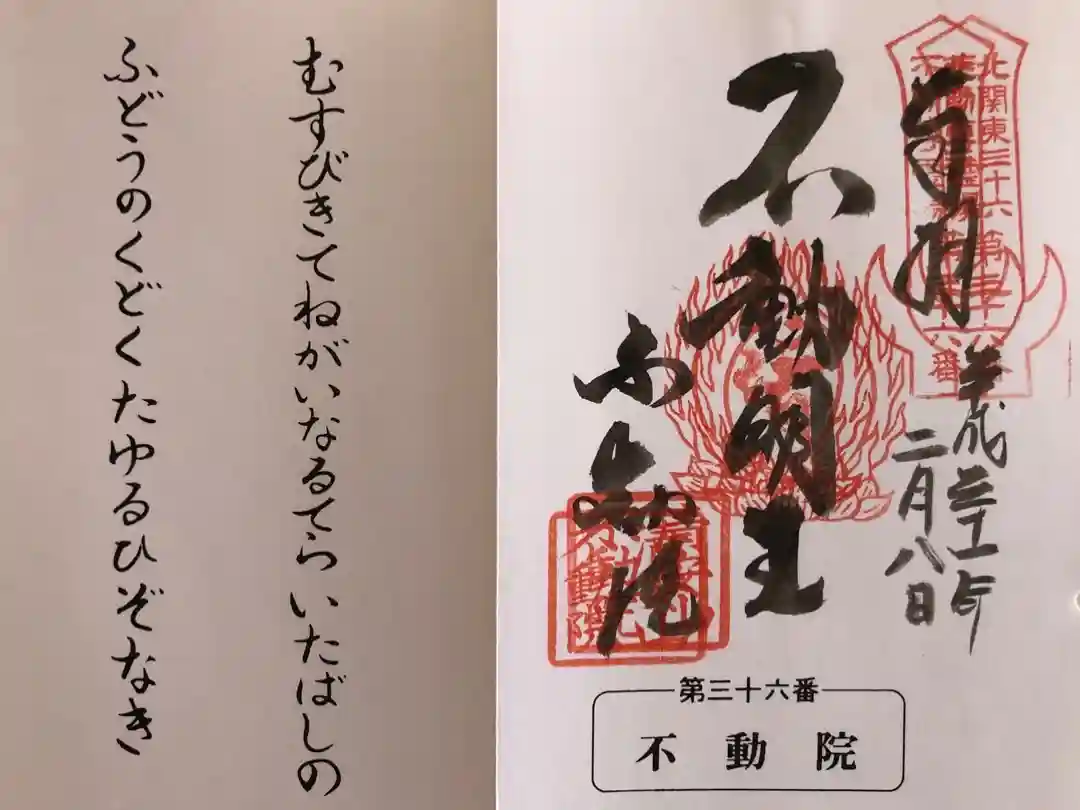 むすびきてねがいなるてら いたばしの
ふどうのくどくたゆるひぞなき
北関東三十六
奉拝
不動明王
不動院
平成三十一年
二月八日
第三十六番
不動院